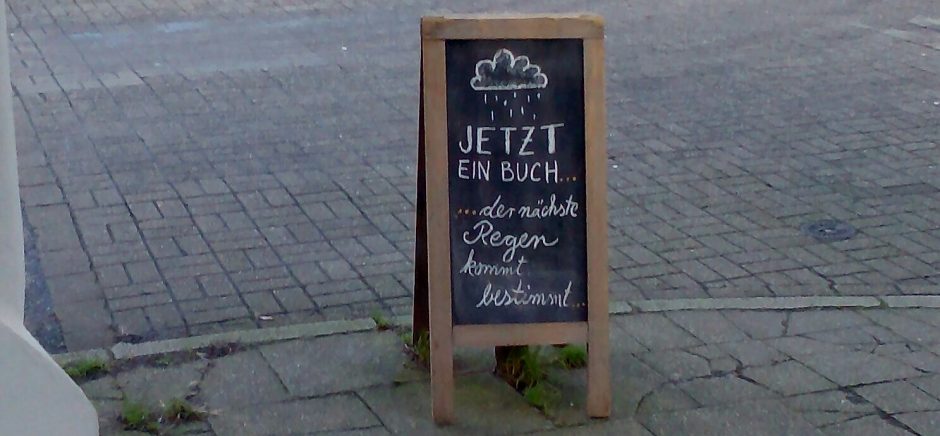 JETZT
EIN BUCH...
...der nächste
Regen
kommt
bestimmt...